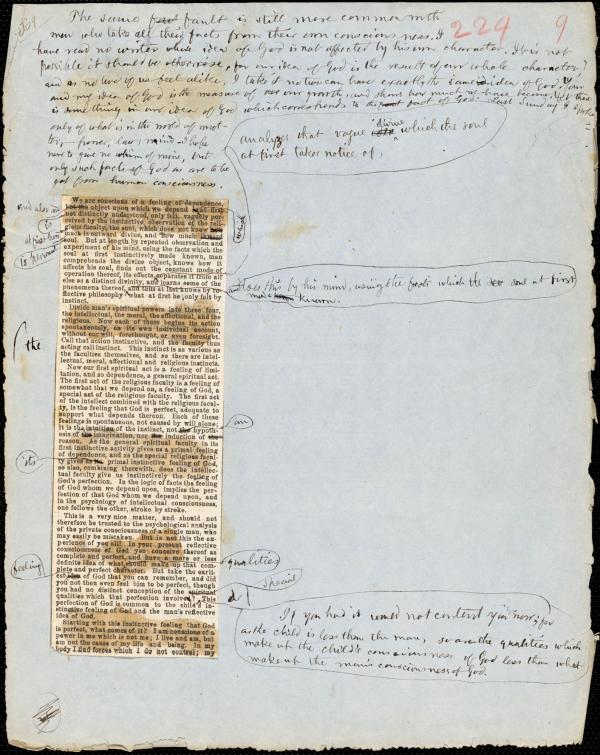 The same fault is still more common with
men who take all their facts from their own consciousness. I
224 9
have read no writer whose idea of God is not affected by his own character. It is not
possible it should be otherwise, for our idea of God is the result of our whole character,
and as no two of us feel alike, I take it no two can have exactly the same idea of God.
and my idea of God is the measure of my growth, and shows how much
is something in our idea of God which corresponds to the fact of God. Last Sunday I
only of what is in the world of mat-
ter, power, law, mind. I hope
now to give no whim of mine, but
only such facts of God as are to be
got from human consciousness.
analyzes that vague divine which the soul
at first takes notice of,
We are conscious of a feeling of dependence,
but the object upon which we depend is at first
not distinctly understood, only felt, vaguely per-
ceived by the instinctive observation of the reli-
gious faculty, the soul, which does not know how
much is outward divine, and how much inward
soul. But at length by repeated observation and
experiment of his mind, using the facts which the
soul at first instinctively made known, man
comprehends the divine object, knows how it
affects his soul, finds out the constant mode of
operation thereof, its effects, separates it from all
else as a distinct divinity, and learns some of the
phenomena thereof, and thus at last knows by re-
flective philosophy what at first he only felt by
instinct.
which
does this by his mind, using the facts which the soul at first
made known.
Divide man's spiritual powers into three four,
the intellectual, the moral, the affectional, and the
religious. Now each of these begins its action
spontaneously, on its own individual account,
without our will, forethought, or even foresight.
Call that action instinctive, and the faculty thus
acting call instinct. This instinct is as various as
the faculties themselves, and so there are intel-
lectual, moral, affectional and religious instincts.
the
Now our first spiritual act is a feeling of limi-
tation, and so dependence, a general spiritual act.
The first act of the religious faculty is a feeling of
somewhat that we depend on, a feeling of God, a
special act of the religious faculty. The first act
of the intellect combined with the religious facul-
ty, is the feeling that God is perfect, adequate to
support what depends thereon. Each of these
feelings is spontaneous, not caused by will alone;
it is the intuition of the instinct, not the hypoth-
esis of the imagination, nor the induction of the
reason. As the general spiritual faculty in its
first instinctive activity gives us a primal feeling
of dependence, and as the special religious facul-
ty gives us its primal instinctive feeling of God,
so also, combining therewith, does the intellec-
tual faculty give us instinctively the feeling of
God's perfection. In the logic of facts the feeling
of God whom we depend upon, implies the per-
fection of that God whom we depend upon, and
in the psychology of intellectual consciousness,
one follows the other, stroke by stroke.
an
its
This is a very nice matter, and should not
therefore be trusted to the psychological analysis
of the private consciousness of a single man, who
may easily be mistaken. But is not this the ex-
perience of you all? In your present reflective
consciousness of God you conceive thereof as
complete and perfect, and have a more or less
definite idea of what should make up that com-
plete and perfect character. But take the earli-
est idea of God that you can remember, and did
you not then even feel him to be perfect, though
you had no distinct conception of the spiritual
qualities which that perfection involved? This
perfection of God is common to the child's in-
stinctive feeling of God and the man's reflective
idea of God.
feeling
qualities
special
d
If you had it would not content you now; for
as the child is less than the man, so are the qualities which
make up the child's consciousness of God less than what
make up the man's consciousness of God.
Starting with this instinctive feeling that God
is perfect, what comes of it? I am conscious of a
power in me which is not me; I live and am, but
am not the cause of my life and being. In my
body I find forces which I do not control; my